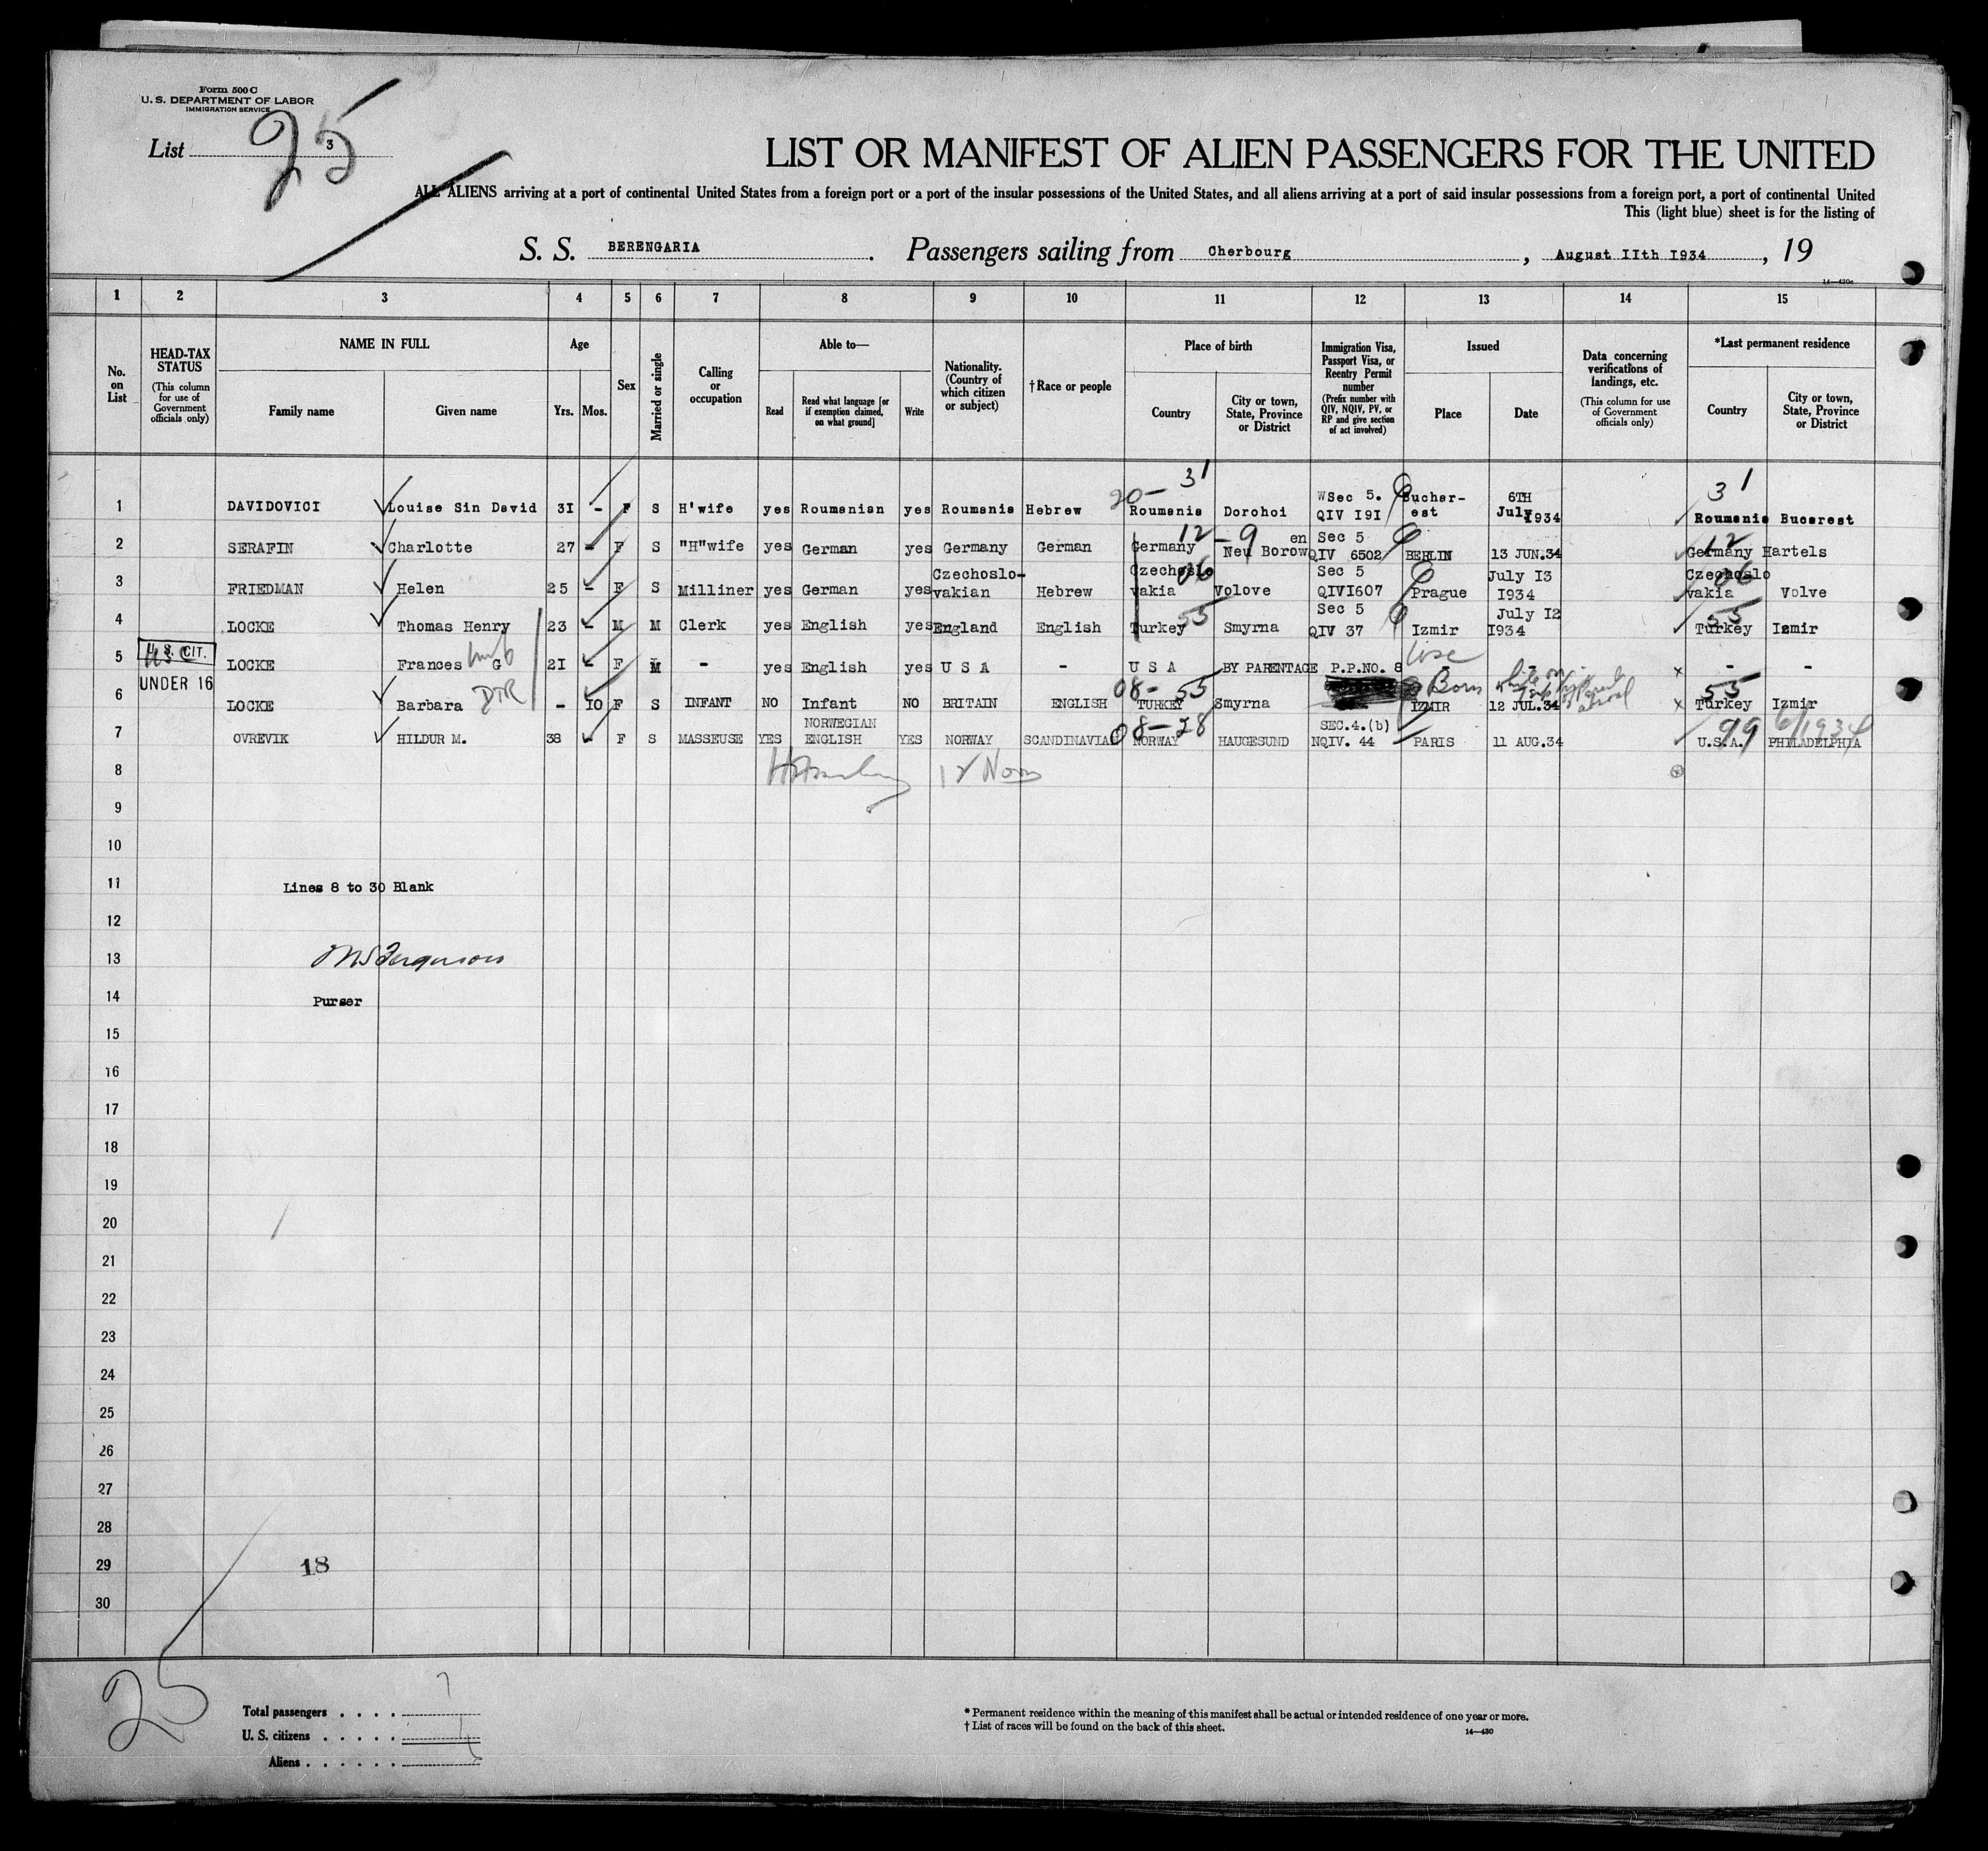 Form 500 C
U. S. DEPARTMENT OF LABOR
IMMIGRATION SERVICE
List 3
25
LIST OR MANIFEST OF ALIEN PASSENGERS FOR THE UNITED
ALL ALIENS arriving at a port of continental United States from a foreign port or a port of the insular possessions of the United States, and all aliens arriving at a port of said insular possessions from a foreign port, a port of continental United
This (light blue) sheet is for the listing of
S. S. BERENGARIA. Passengers sailing from Cherbourg, August IIth I934, 19
14—430a
1 2 3 4 5 6 7 8 9 10 11 12 13 14 15
No. on List
HEAD-TAX STATUS (This column for use of Government officials only)
NAME IN FULL
Family name Given name
Age
Yrs. Mos.
Sex
Married or single
Calling or occupation
Able to—
Read Read what language [or if exemption claimed, on what ground] Write
Nationality. (Country of which citizen or subject)
†Race or people
Place of birth
Country City or town, State, Province or District
Immigration Visa, Passport Visa, or Reentry Permit number (Prefix number with QIV, NQIV, PV, or RP and give section of act involved)
Issued
Place Date
Data concerning verifications of landings, etc. (This column for use of Government officials only)
*Last permanent residence
Country City or town, State, Province or District
20— 31 31
1 DAVIDOVICI Louise Sin David 3I - F S H'wife yes Roumanian yes Roumania Hebrew Roumania Dorohoi Sec 5. QIV I9I Bucharest 6TH July 1934 Roumania Bucarest
12 — 9 12
2 SERAFIN Charlotte 27 - F S "H"wife yes German yes Germany German Germany Neu Borowen Sec 5 QIV 6502 BERLIN 13 JUN.34 Germany Hartels
06 06
3 FRIEDMAN Helen 25 - F S Milliner yes German yes Czechoslo-vakian Hebrew Czechoslovakia Volove Sec 5 QIVI607 Prague July I3 I934 Czechoslovakia Volve
55 55
4 LOCKE Thomas Henry 23 - M M Clerk yes English yes England English Turkey Smyrna Sec 5 QIV 37 Izmir July I2 I934 Turkey Izmir
U. S. CIT.
5 LOCKE Frances G 2I - F M - yes English yes U S A - U S A BY PARENTAGE P.P.NO. 8 - - - -
UNDER 16
08— 55 Born 55
6 LOCKE Barbara DTR - IO F S INFANT NO Infant NO BRITAIN ENGLISH TURKEY Smyrna IZMIR 12 JUL.34 Turkey Izmir
08—28 99 6/1934
7 OVREVIK HILDUR M. 38 - F S MASSEUSE YES NORWEGIAN ENGLISH YES NORWAY SCANDINAVIAN NORWAY HAUGESUND SEC.4.(b) NQIV. 44 PARIS 11 AUG.34 U.S.A. PHILADELPHIA
8
9
10
11 Lines 8 to 30 Blank
12
13
14 Purser
15
16
17
18
19
20
21
22
23
24
25
26
27
28
29 18
30
25
Total passengers . . . . 7
U. S. citizens . . . . . 1
Aliens . . . . . .
* Permanent residence within the meaning of this manifest shall be actual or intended residence of one year or more.
† List of races will be found on the back of this sheet. 14—430